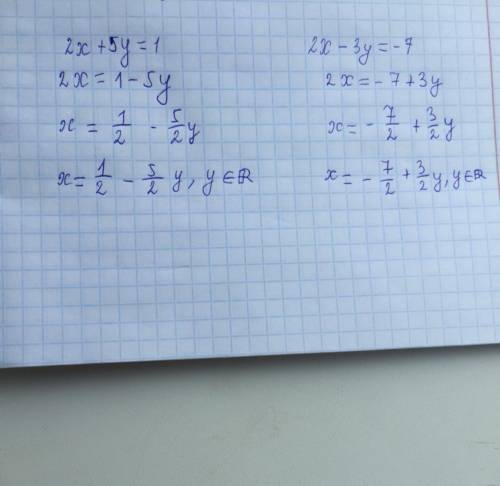 2x+5y=1
2x=1-5y
x = 1/2 - 5/2 y
x= 1/2 - 5/2 y, y∈ℝ
2x-3y=-7
2x=-7+3y
x=- 7/2 + 3/2 y
x=- 7/2 + 3/2 y, y∈ℝ